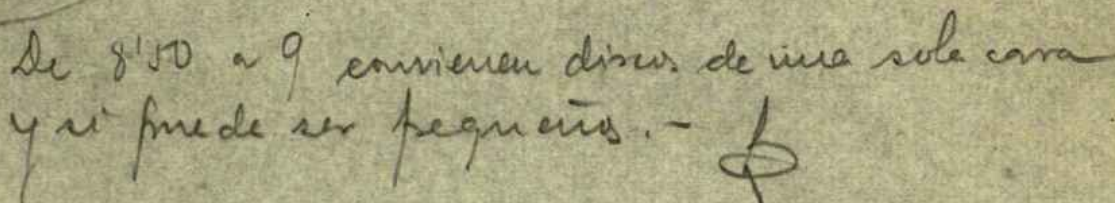 De 8'50 a 9 convienen discos de una sola cara
y si puede ser pequeños.-